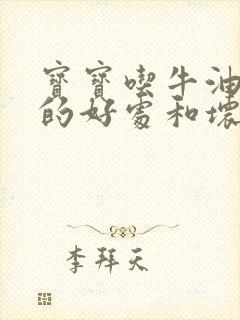 寶寶喫牛油
的好處和壞
李拜天